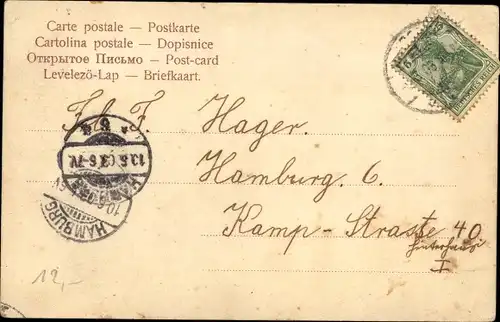 Carte postale — Postkarte
Cartolina postale — Dopisnice
Открытое Письмо — Post-card
Levelező-Lap — Briefkaart.
Frl. F. Hager.
Hamburg. 6
Kamp-Strasse 40
Hinterhaus
I
HAMBURG
12,-